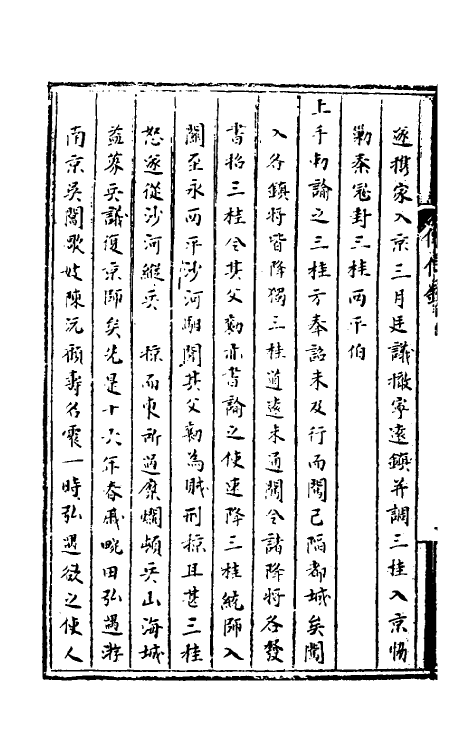 遂携家入京三月廷議撤寧遠鎮并調三桂入京協
勦秦寇封三桂西平伯
上手勅諭之三桂方奉詔未及行而闖已陷都城矣闖
入各鎮將皆降獨三桂道遠未通闖令諸降將各發
書招三桂令其父勷亦書諭之使速降三桂統師入
關至永西平沙河驛聞其父勷為賊刑掠且甚三桂
怒遂從沙河縱兵 掠而東所過糜爛頓兵山海城
益募兵議復京師矣先是十六年春戚畹田弘遇游
南京吳閶歌妓陳沅顧壽名震一時弘遇欲之使人